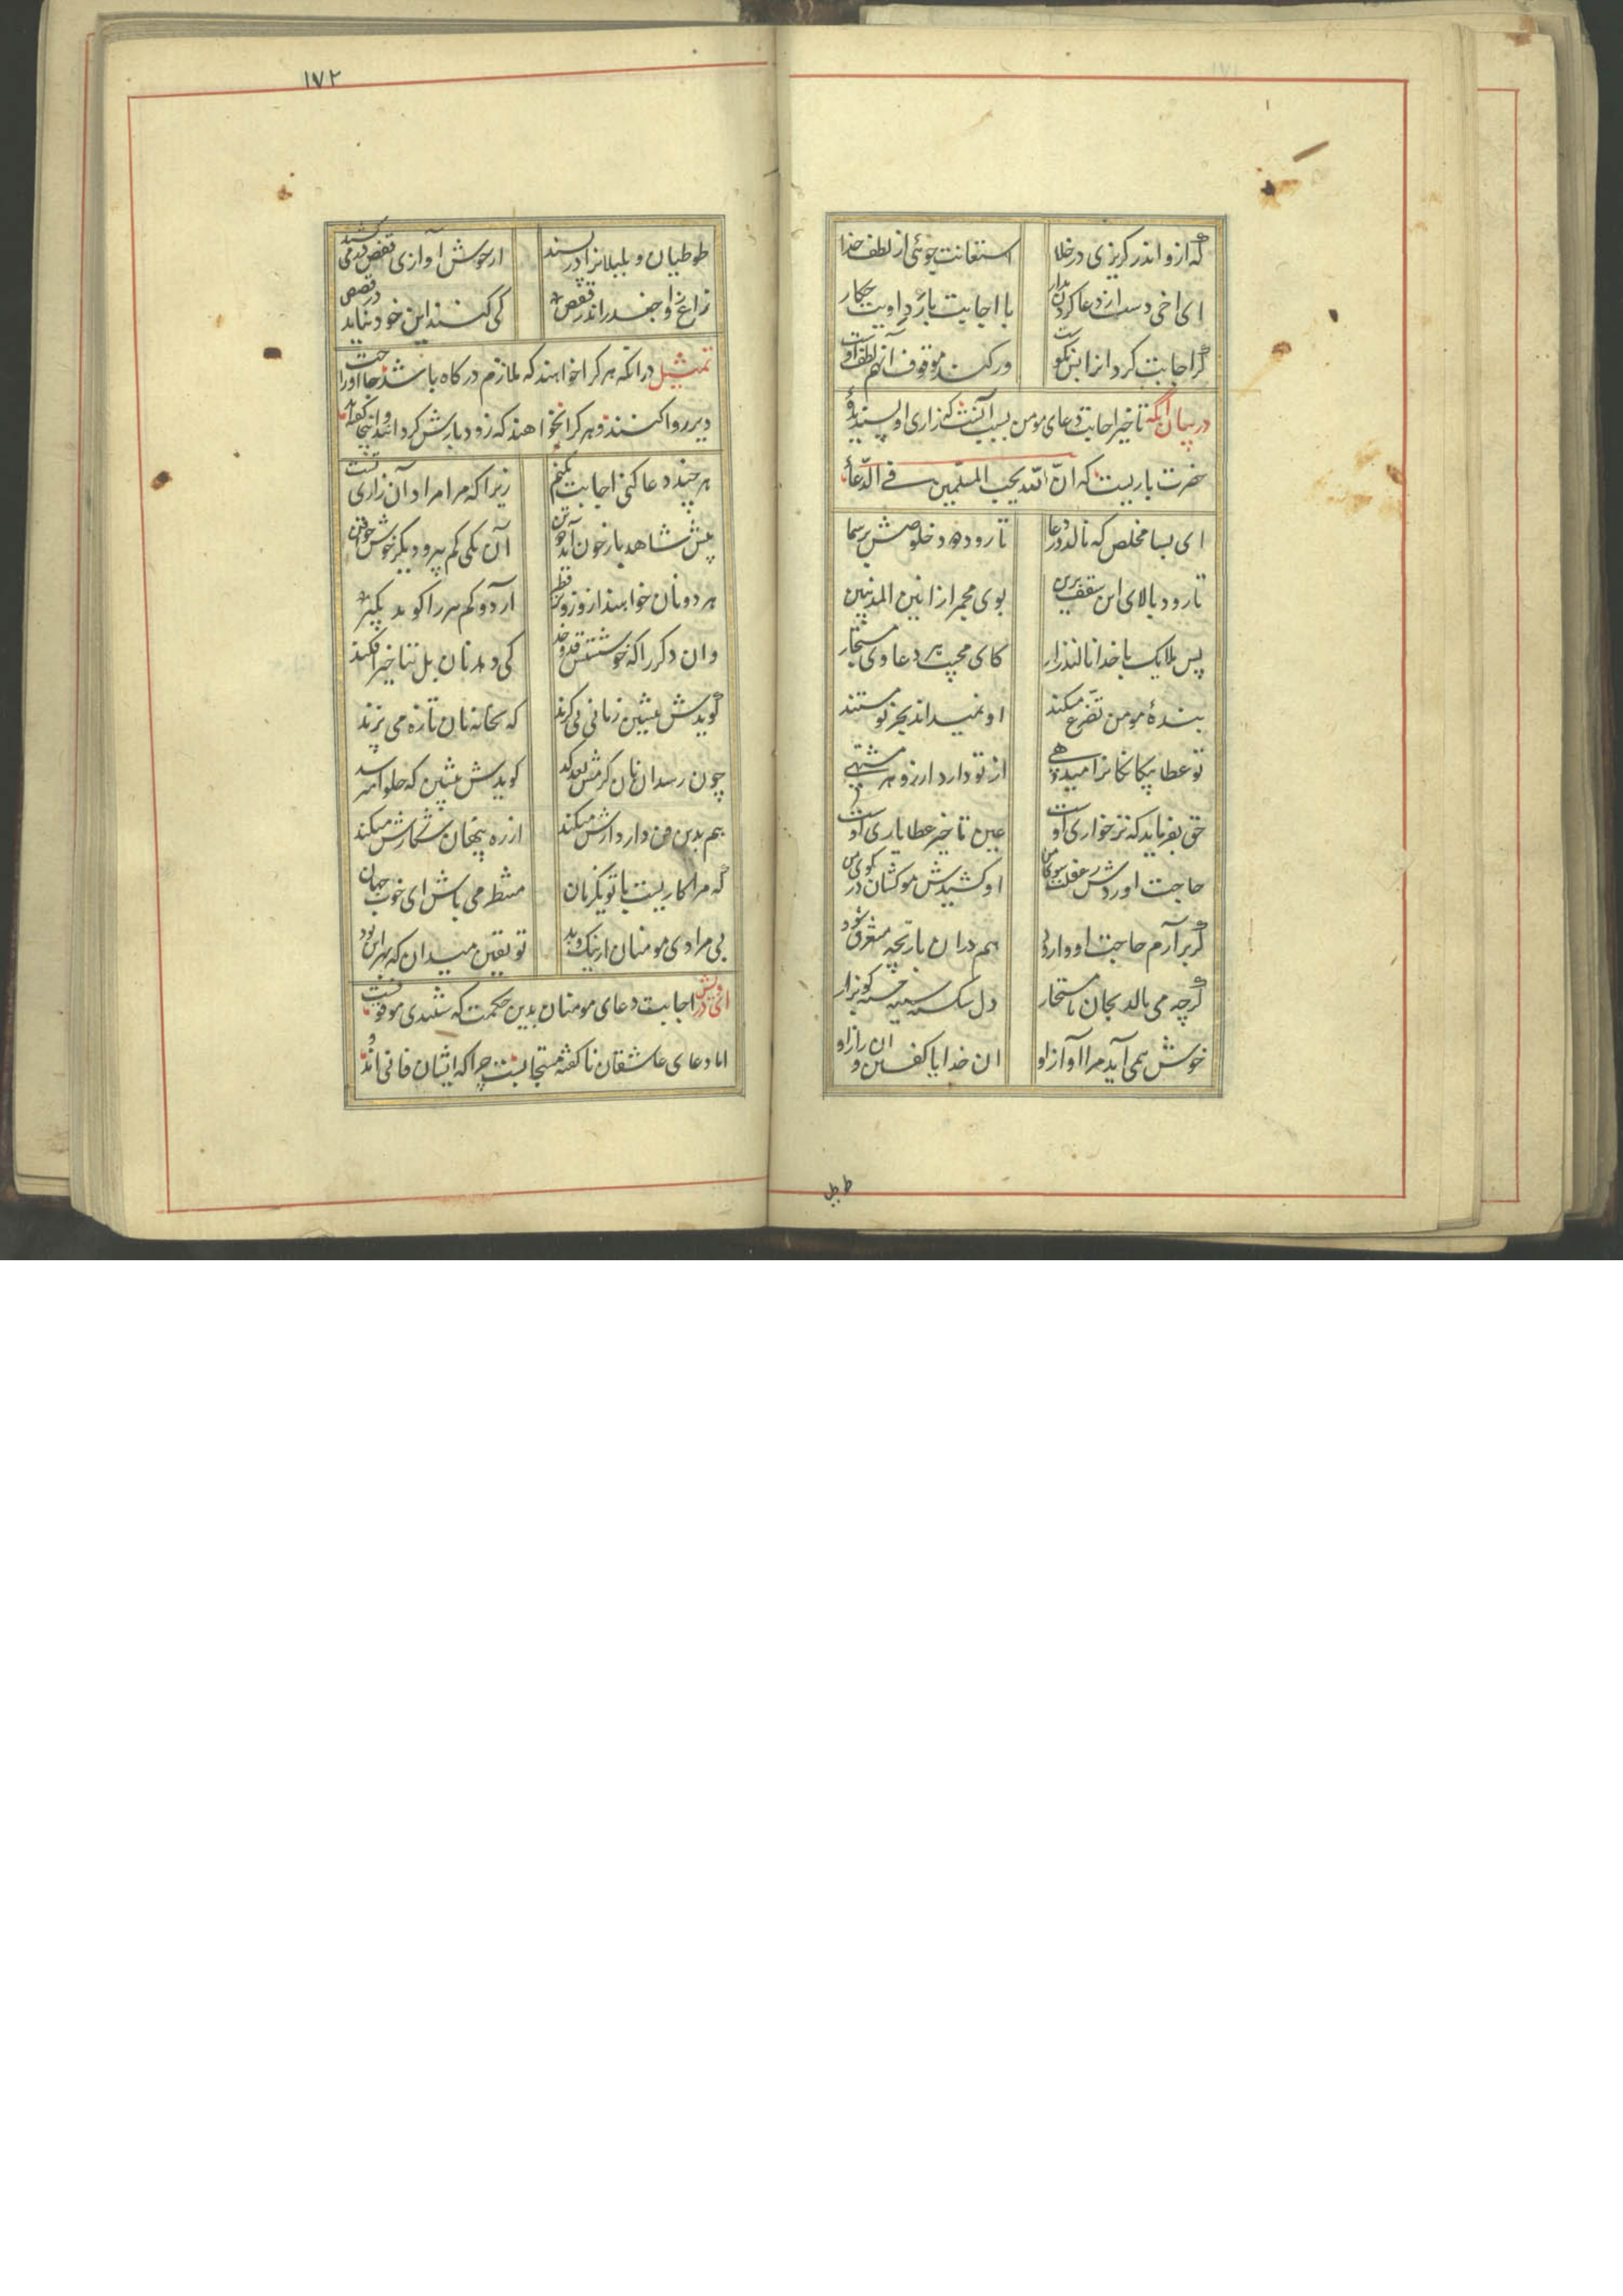 که ازو اندر گریزی در خلا استغانت جوئی از لطف خدا
ای اخی دست از دعا کردن مدار با اجابت یا رد اویت چکار
گر اجابت کرد انرا بس نکوست ور کند موقوف آنهم لطف اوست
در بیان آنکه تاخیر اجابت دعای مومن بسبب آنست که زاری او پسندیدهٔ
حضرت باریست که انّ الله یحب الملحّین فی الدّعاء
ای بسا مخلص که نالد در دعا تا رود دود خلوصش بر سما
تا رود بالای این سقف برین بوی مجمر از انین المذنبین
پس ملایک با خدا نالند زار کای مجیب هر دعا وی مستجار
بندهٔ مومن تضرّع میکند او نمیداند بجز تو مستند
تو عطا بیکانکانرا میدهی از تو دارد ارزو هر مشتهی
حق بفرماید که نز خواری اوست عین تاخیر عطا یاری اوست
حاجت اوردش ز غفلت سوی من او کشیدش موکشان در کوی من
گر برآرم حاجت او وارود هم دران بازیچه مستغرق شود
گرچه می نالد بجان یا مستجار دل شکسته سینه خسته کو بزار
خوش همی آید مرا آواز او ان خدایا گفتن و ان راز او
ط جل
۱۷۲
طوطیان و بلبلانرا در پسند از خوش آوازی قفص در می کشند
زاغ را و جغد را اندر قفص کی کنند این خود نیاید در قصص
تمثیل در آنکه هر کرا خواهند که ملازم درکاه باشد حاجت او را
دیر روا کنند و هر کرا نخواهند که زود بازش گردانند
هر چند دعا کنی اجابت نکنم زیرا که مرا مراد آن زاری تست
پیش شاهد باز چون آید دو تن آن یکی کم پیر و دیکر خوش ذقن
هر دو نان خواهند از و زوتر فطیر آرد و کم پیر را کوید بکیر
وان دکر را که خوشستش قد و خد کی دهد نان بل بتاخیر افکند
گویدش بنشین زمانی بی گزند که بخانه نان تازه می پزند
چون رسد ان نان گرمش بعد کد کویدش بنشین که حلوا میرسد
هم بدین فن دار دارش میکند از ره پنهان شکارش میکند
که مرا کاریست با تو یکزمان منتظر می باش ای خوب جهان
بی مرادی مومنان از نیک و بد تو یقین میدان که بهر این بود
ای درویش اجابت دعای مومنان بدین حکمت که شنیدی موقوفست
اما دعای عاشقان ناکفته مستجابست چرا که ایشان فانی اند و